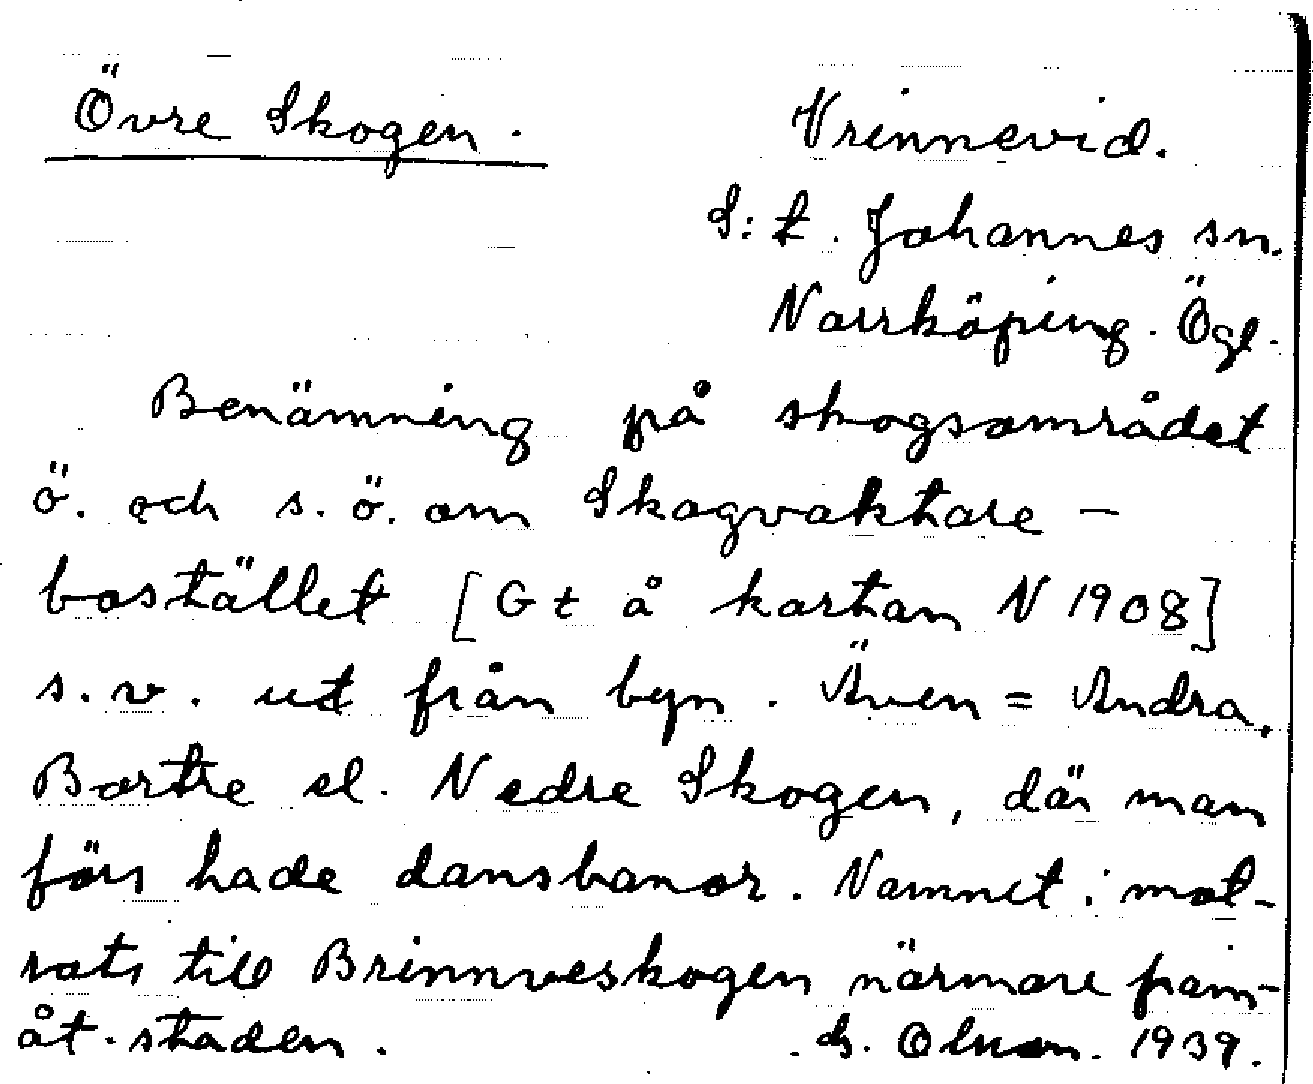 Övre Skogen.
Vrinnevid.
S:t. Johannes sn.
Norrköping. Ögl.
Benämning på skogsområdet
ö. och s.ö. om Skogvaktare-
bostället [Gt å kartan N 1908]
s.v. ut från byn. Även = Andra,
Bortre el. Nedre Skogen, där man
förs hade dansbanor. Namnet i mot-
sats till Brinnveskogen närmare fram-
åt staden. Olson. 1939.